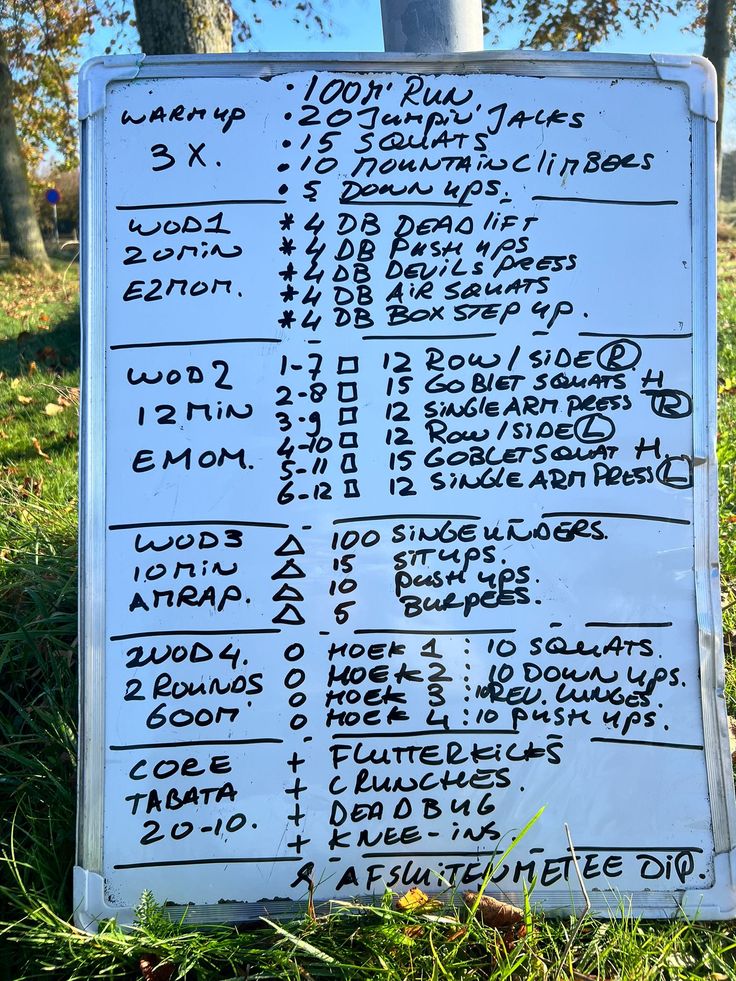 • 100M' RUN
WARMUP • 20 Jumpin' JACKS
3 X. • 15 SQUATS
• 10 MOUNTAINCLIMBERS
• 5 DOWN UPS.
WOD1 * 4 DB DEADLIFT
20MIN * 4 DB PUSH UPS
E2MOM. * 4 DB DEVILS PRESS
* 4 DB AIR SQUATS
* 4 DB BOX STEP UP.
WOD2 1-7 □ 12 ROW / SIDE Ⓡ
12 MIN 2-8 □ 15 GOBLET SQUATS H
EMOM. 3-9 □ 12 SINGLE ARM PRESS Ⓡ
4-10 □ 12 ROW / SIDE Ⓛ
5-11 □ 15 GOBLETSQUAT H.
6-12 □ 12 SINGLE ARM PRESS Ⓛ
WOD3 △ 100 SINGEUNDERS.
10 MIN △ 15 SIT UPS.
AMRAP. △ 10 PUSH UPS.
△ 5 BURPEES.
WOD4. O HOEK 1 : 10 SQUATS.
2 ROUNDS O HOEK 2 : 10 DOWN UPS.
600M' O HOEK 3 : 10 REV. LUNGES.
O HOEK 4 : 10 PUSH UPS.
CORE + FLUTTERKICKS
TABATA + CRUNCHES.
20-10. + DEADBUG
+ KNEE-INS.
& AFSLUITEN METEE DIP.